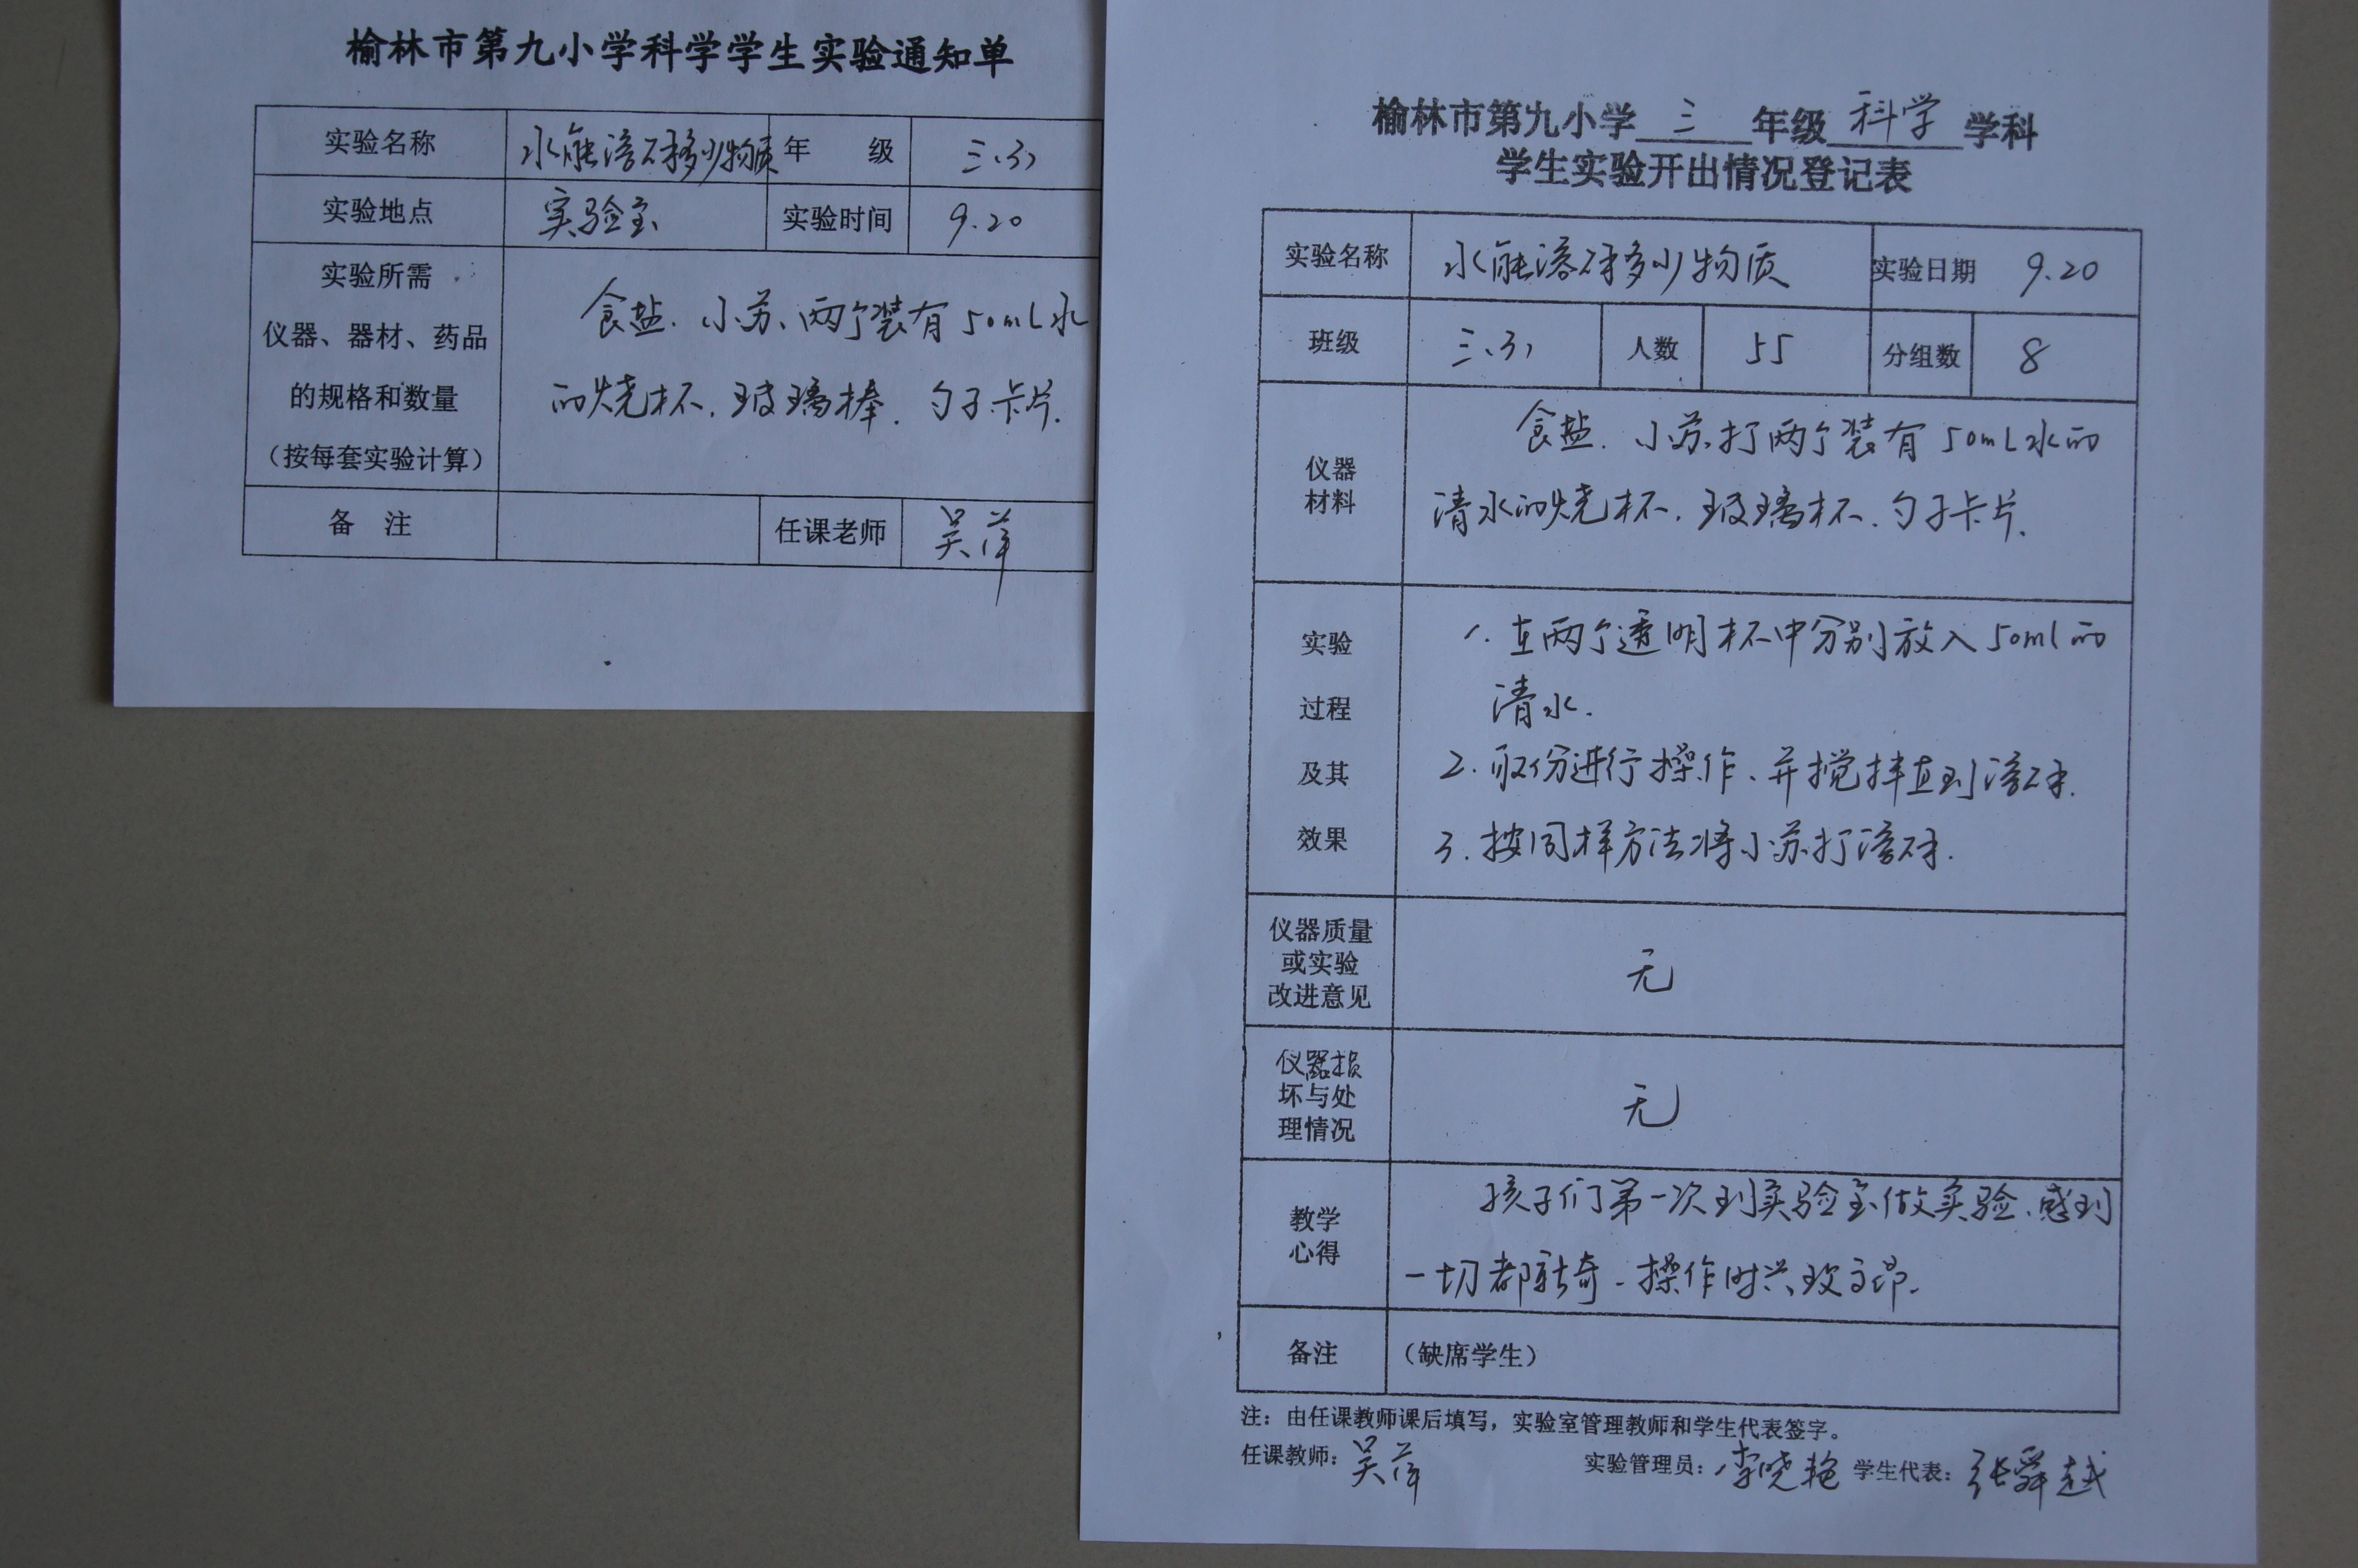 榆林市第九小学科学学生实验通知单
实验名称 水能溶解多少物质 年 级 三、3)
实验地点 实验室 实验时间 9.20
实验所需
仪器、器材、药品
的规格和数量
（按每套实验计算）
食盐、小苏、两个装有50mL水
的烧杯、玻璃棒、勺子卡片.
备 注 任课老师 吴萍
榆林市第九小学 三 年级 科学 学科
学生实验开出情况登记表
实验名称 水能溶解多少物质 实验日期 9.20
班级 三、3) 人数 55 分组数 8
仪器
材料
食盐、小苏打两个装有50mL水的
清水的烧杯、玻璃杯、勺子卡片.
实验
过程
及其
效果
1. 在两个透明杯中分别放入50ml的
清水.
2. 取份进行操作、并搅拌直到溶解.
3. 按同样方法将小苏打溶解.
仪器质量
或实验
改进意见
无
仪器损
坏与处
理情况
无
教学
心得
孩子们第一次到实验室做实验、感到
一切都新奇、操作时兴致高昂.
备注 （缺席学生）
注：由任课教师课后填写，实验室管理教师和学生代表签字。
任课教师：吴萍 实验管理员：李晓艳 学生代表：张舜越